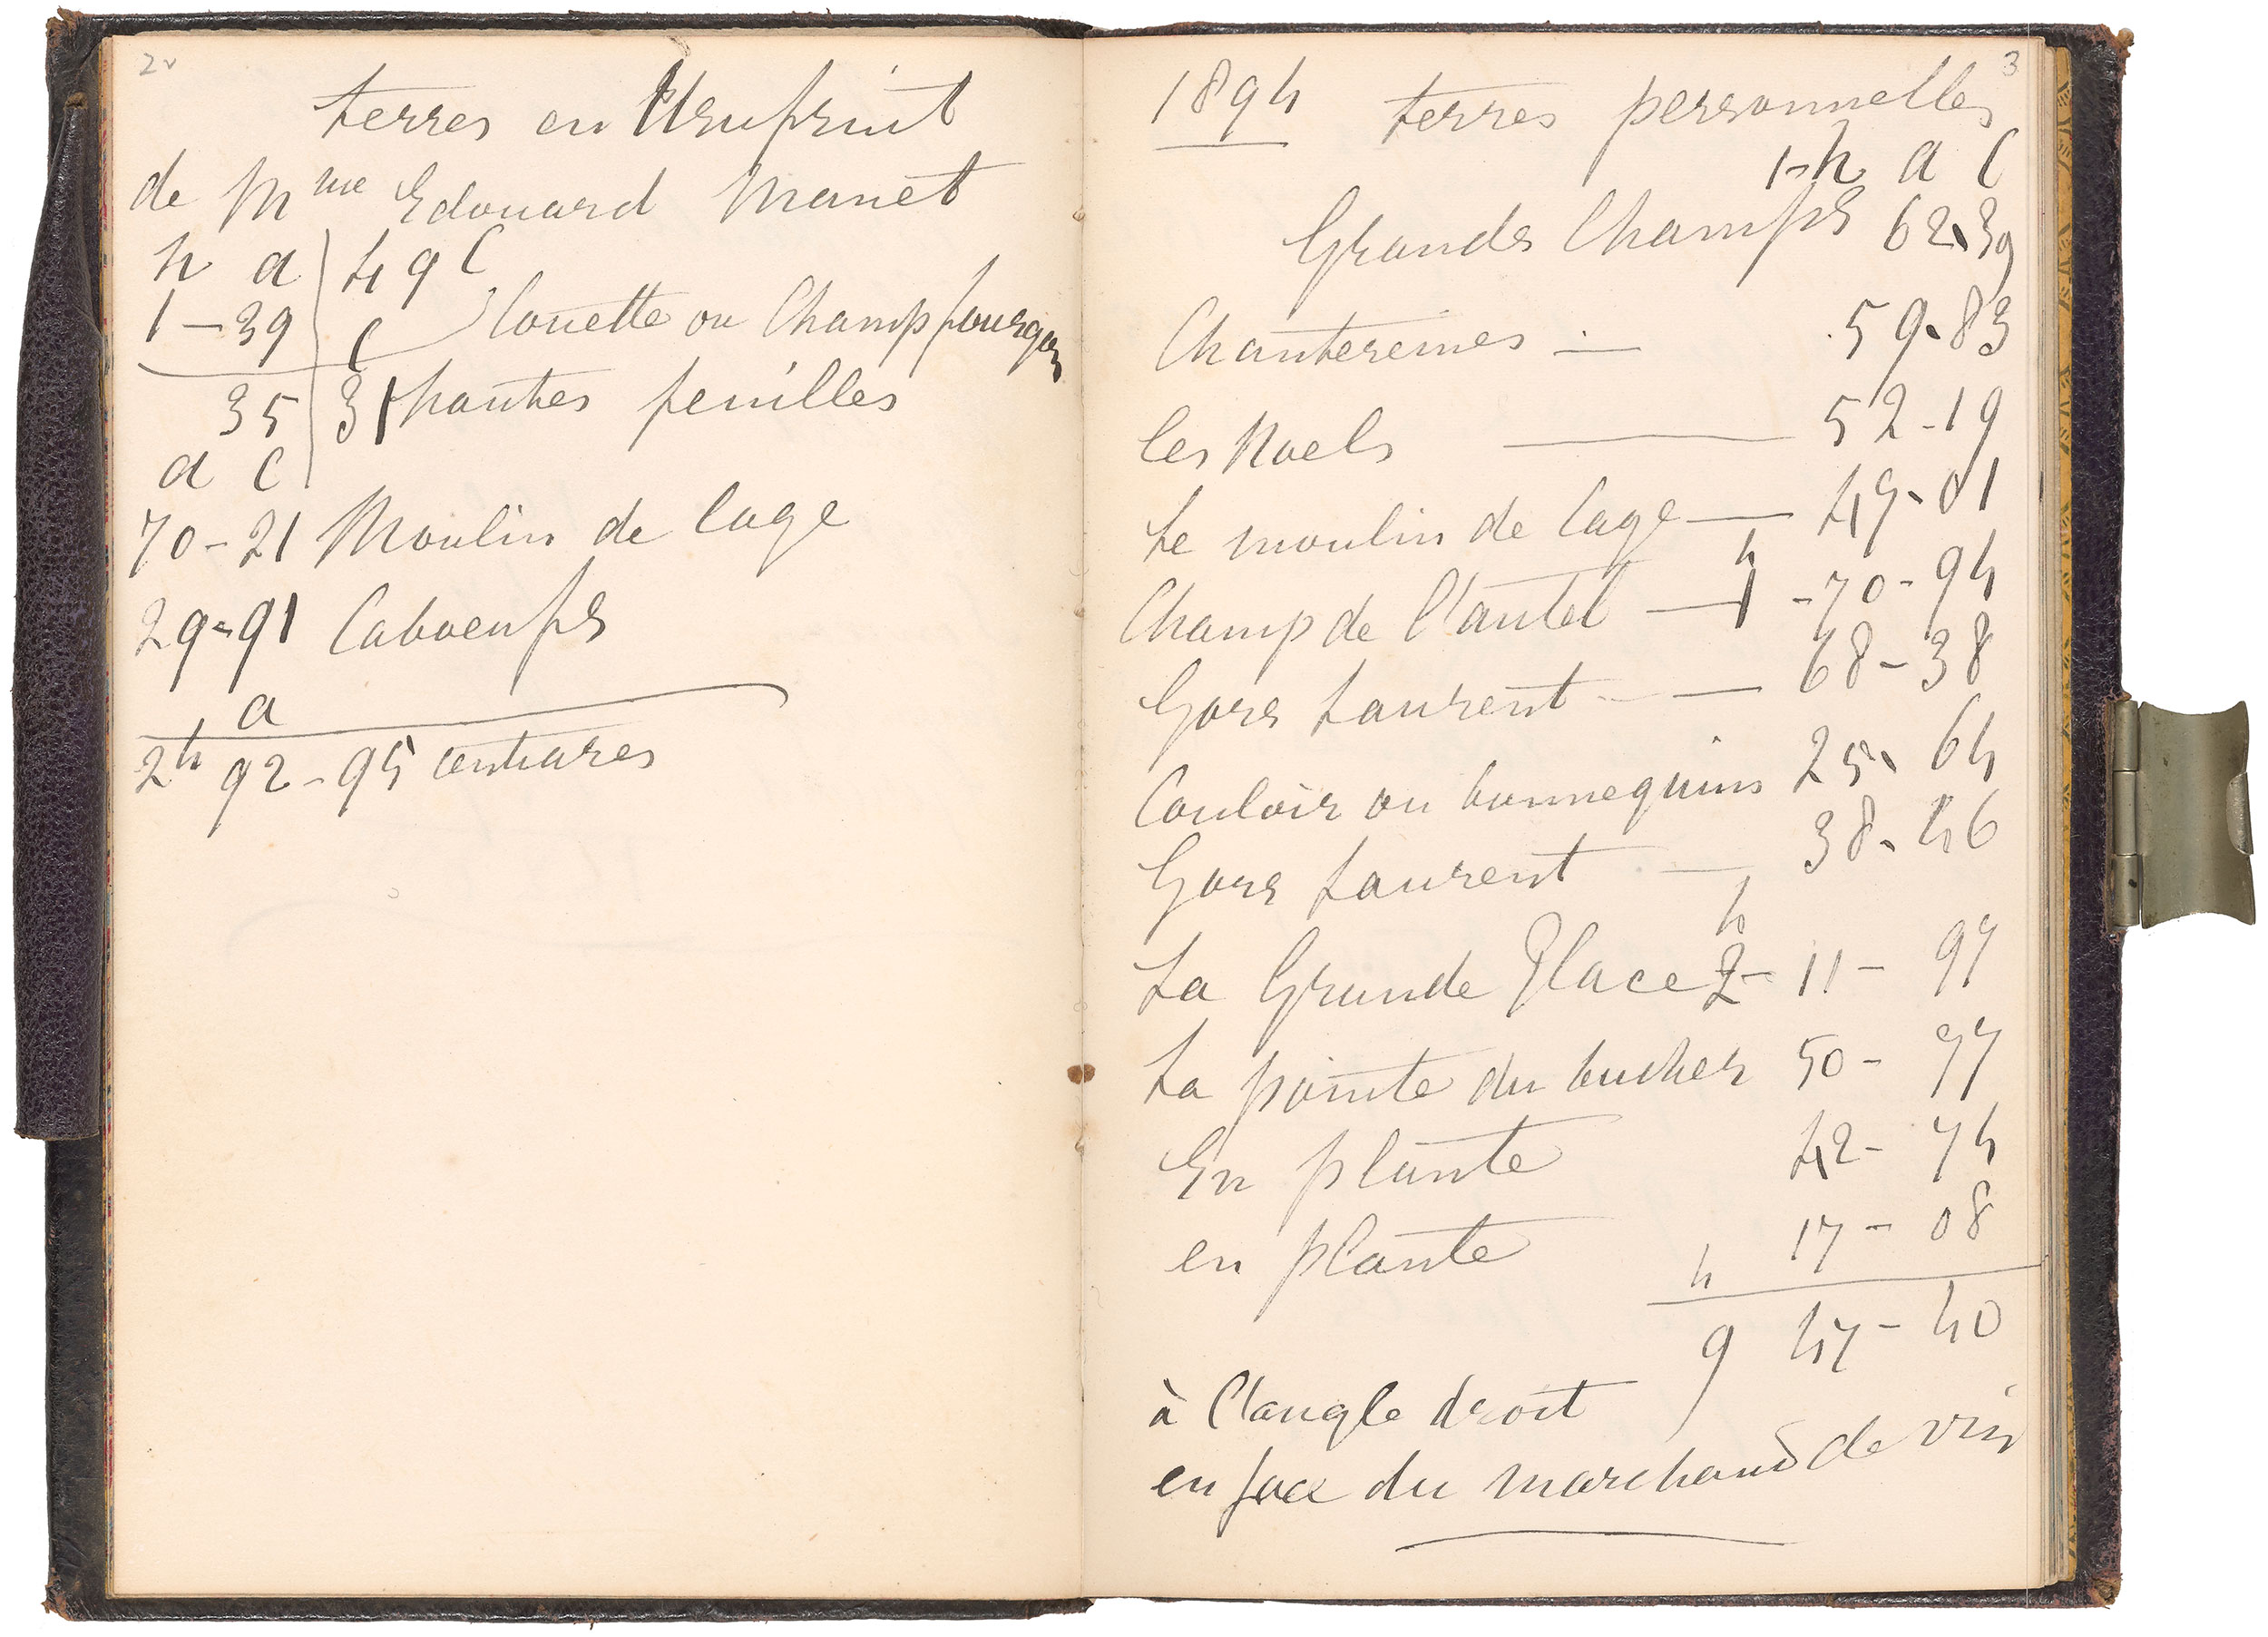 2v
terres en Usufruit
de Mme Edouard Manet
h a 49 c
1-39 c Couette ou Champ fourgon
35 31 hautes feuilles
a c
70-21 Moulin de Cage
29-91 Caboeufs
a
2h 92-95 centiares
3
1894 terres personnelles
1-h a c
Grands Champs 62.39
Chantereines — 59.83
les Noels — 52-19
Le moulin de Cage — 49-01
h
Champ de l'autel — 1-70-94
Gors Laurent — 68-38
Couloir ou bonnequins 25. 64
Gors Laurent — 38.46
h
La Grande Place 2-11-97
La pointe du bucher 50-77
En plante 42-74
en plante 17-08
h
9 47-40
à l'angle droit
en face du marchand de vin